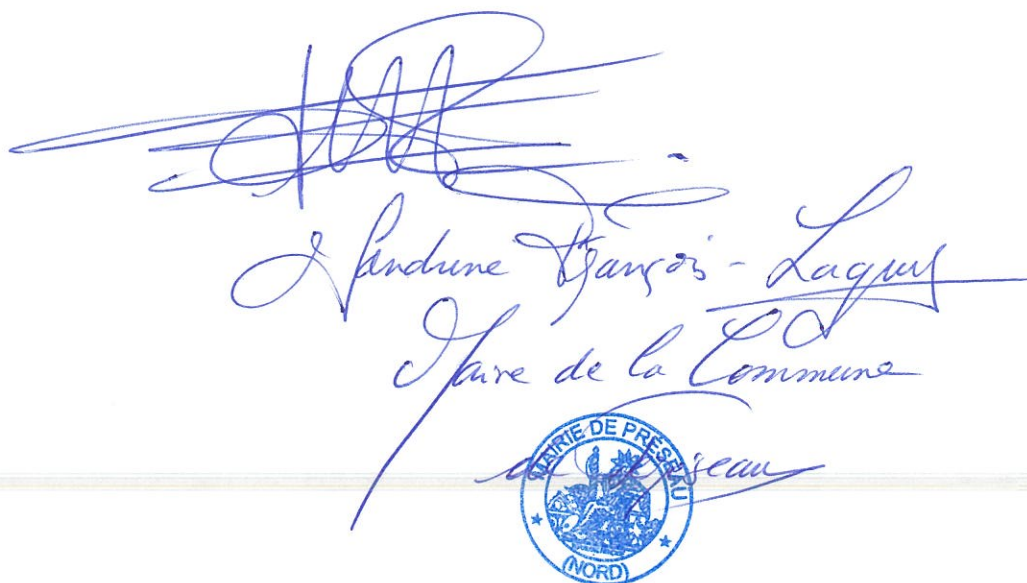 Sandrine François-Lagny
Maire de la Commune
de Préseau
MAIRIE DE PRÉSEAU
(NORD)